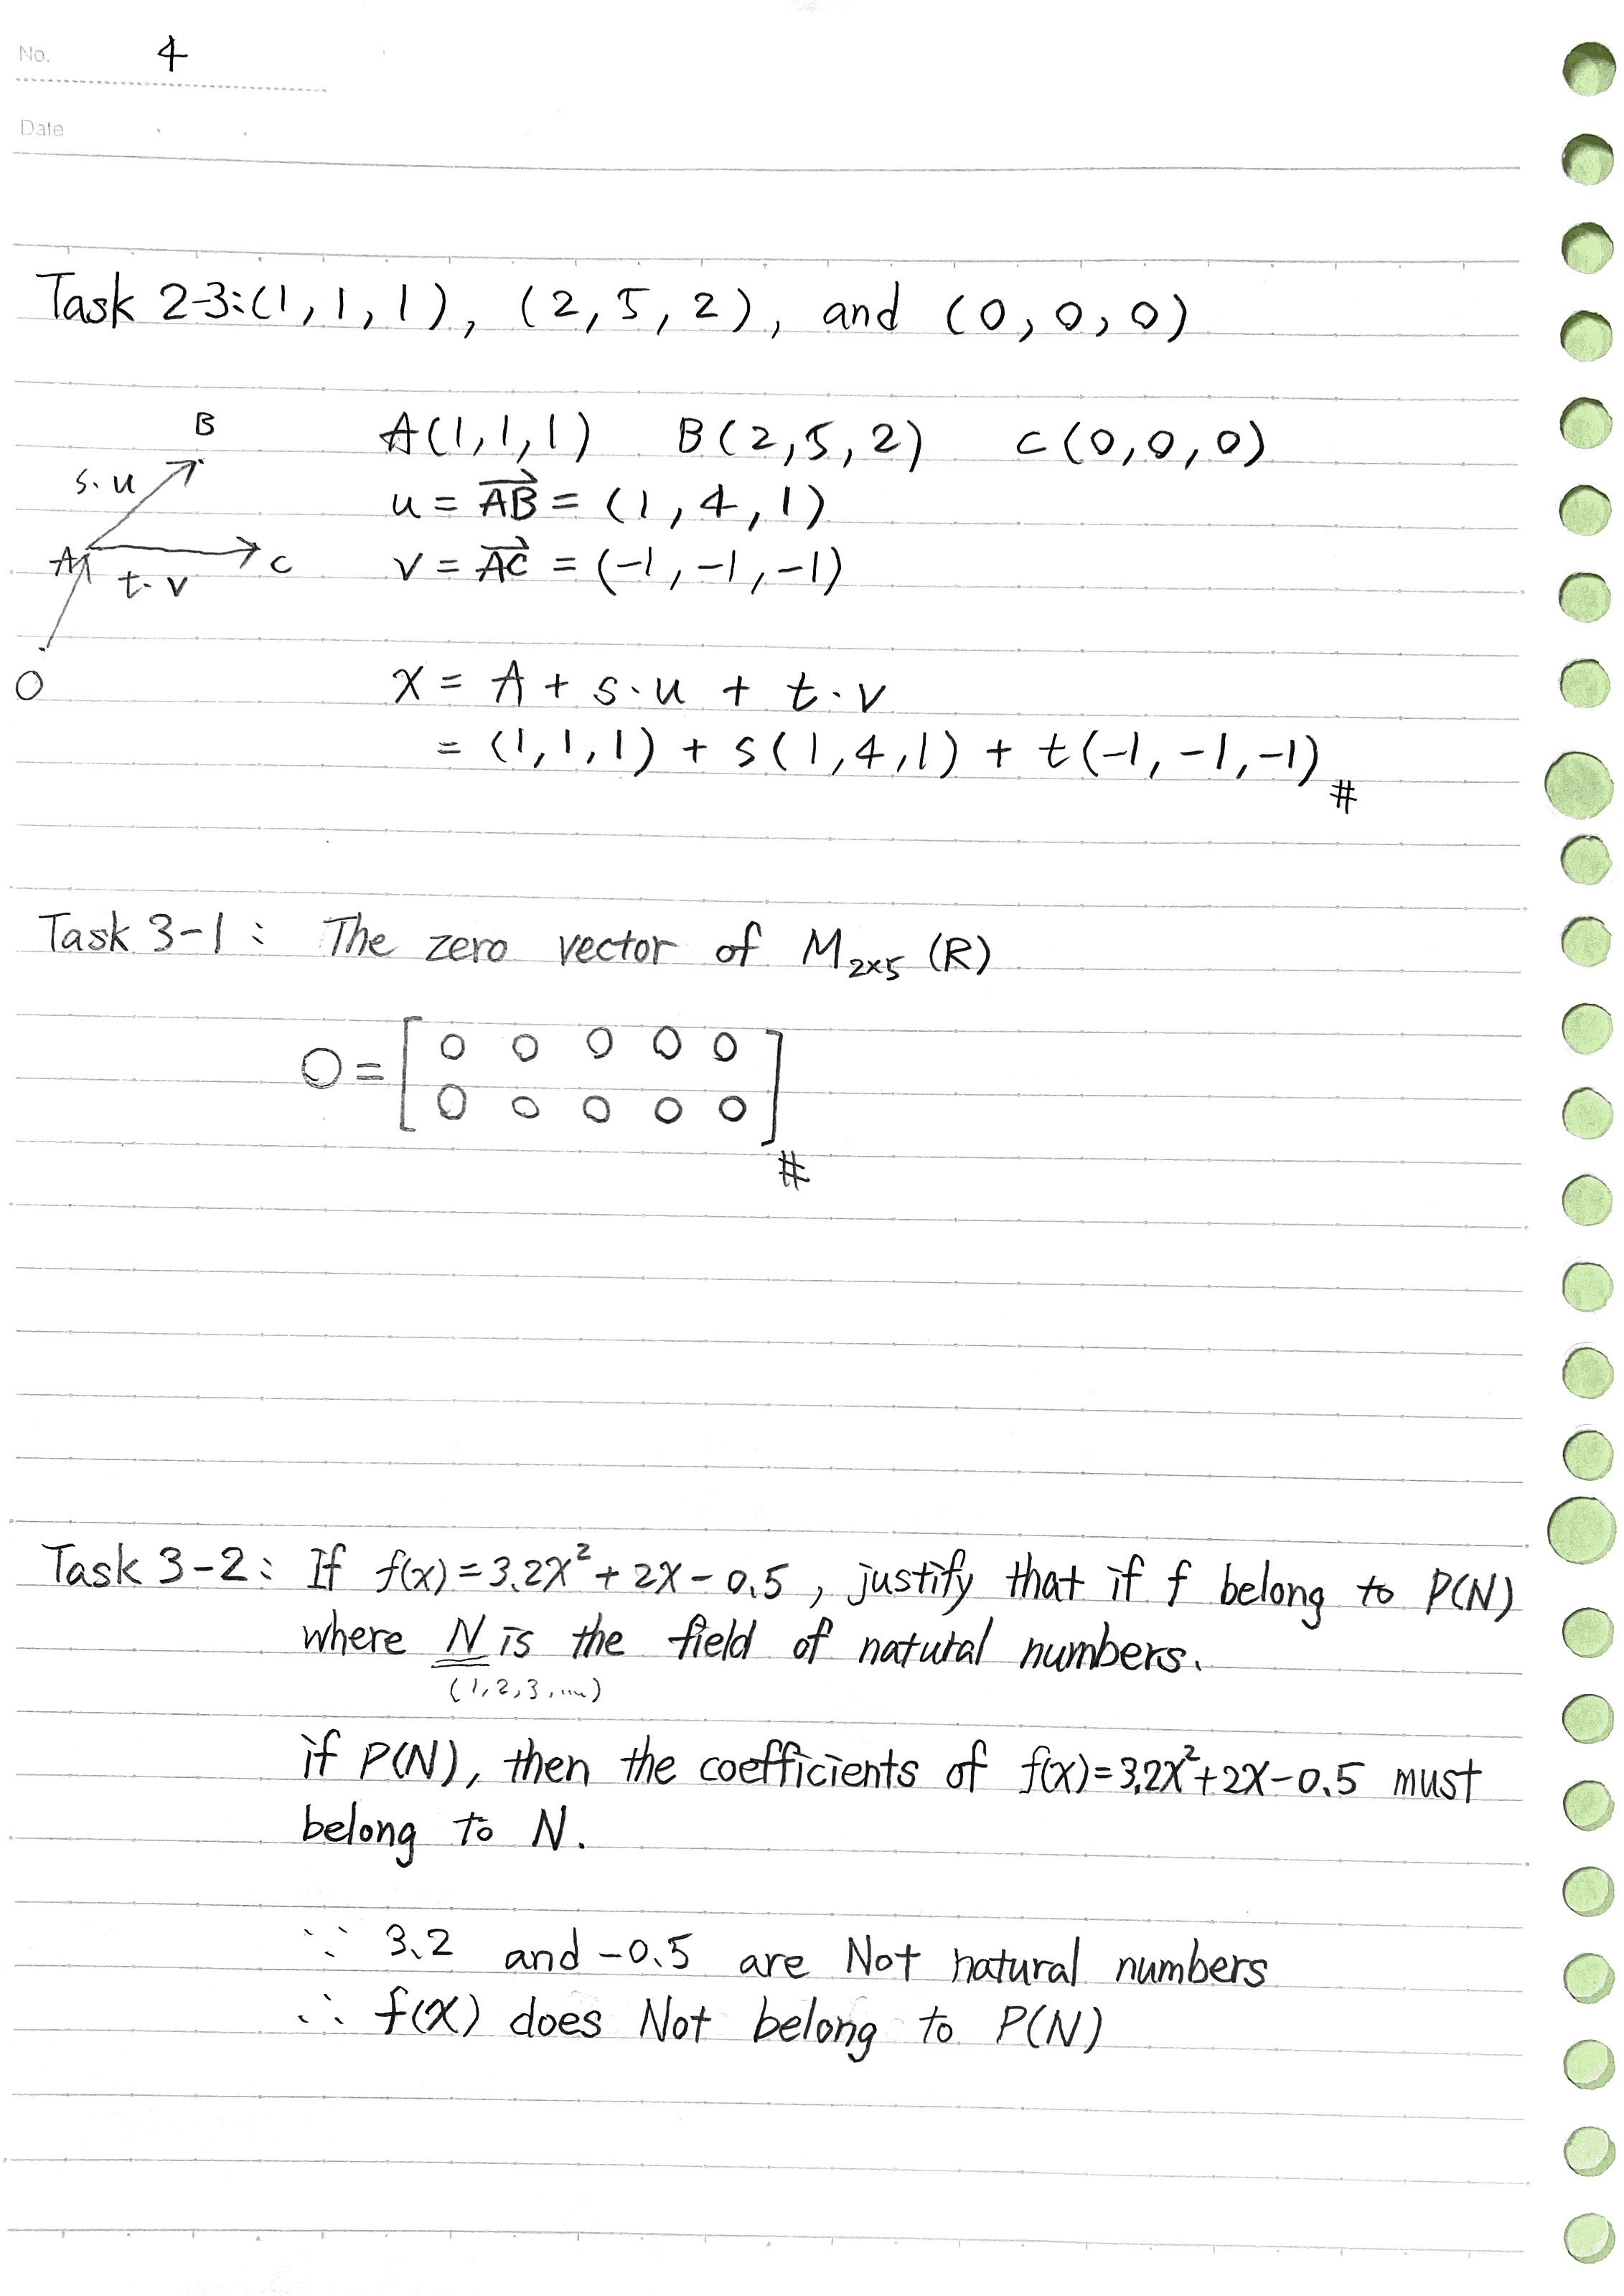 No. 4
Date
Task 2-3:(1,1,1), (2,5,2), and (0,0,0)
B
s·u
A
t·v
C
O
A(1,1,1) B(2,5,2) C(0,0,0)
u = \overrightarrow{AB} = (1,4,1)
v = \overrightarrow{AC} = (-1,-1,-1)
x = A + s·u + t·v
= (1,1,1) + s(1,4,1) + t(-1,-1,-1) #
Task 3-1: The zero vector of M₂ₓ₅ (R)
O = [0 0 0 0 0
0 0 0 0 0] #
Task 3-2: If f(x)=3.2x²+2x-0.5, justify that if f belong to P(N)
where N is the field of natural numbers.
(1,2,3,....)
if P(N), then the coefficients of f(x)=3.2x²+2x-0.5 must
belong to N.
∵ 3.2 and -0.5 are Not natural numbers
∴ f(x) does Not belong to P(N)